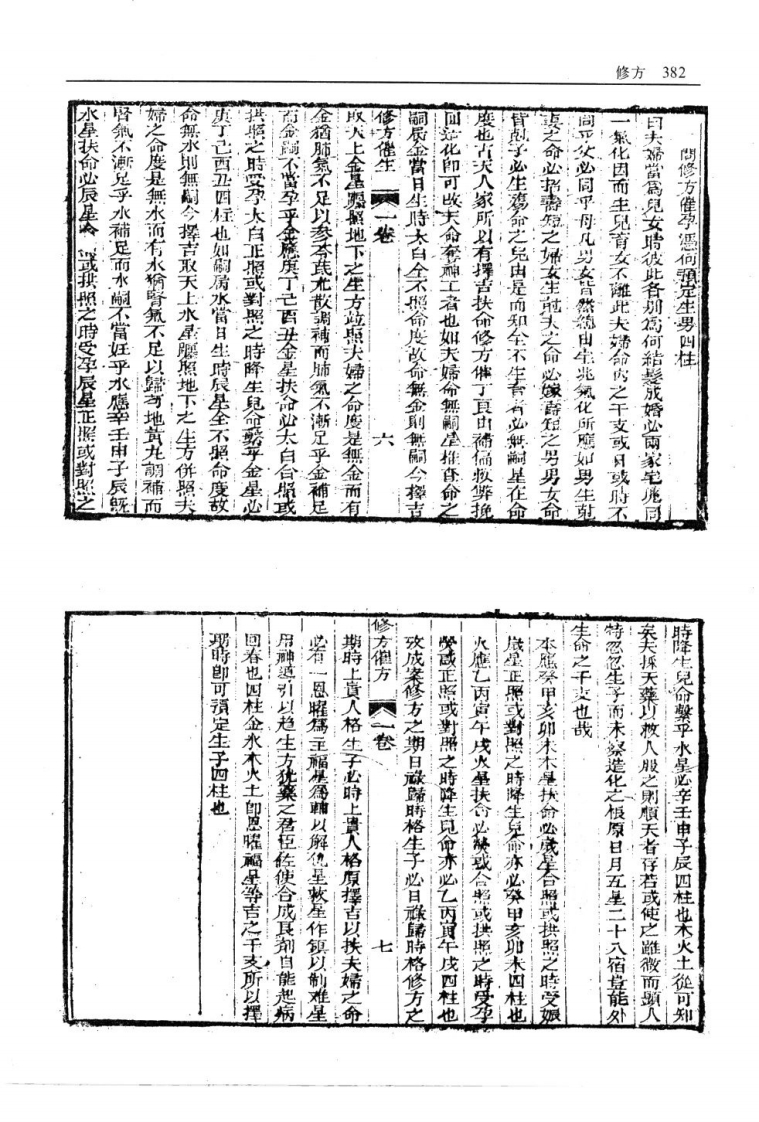 修方 382
問修方催孕憑何預定生男四柱
曰夫婦當爲兒女時彼此各別爲何結髮成婚必兩家宅兆同
一氣化因而生兒育女不離此夫婦命内之干支或日或時不
同乎父必同乎母凡男女皆然總由生兆氣化所應如男生尅
妻之命必招壽短之婦女生尅夫之命必嫁壽短之男男女命
皆尅子必生殤命之兒由是而知全不生育者必無嗣星在命
度也古天人家所以有擇吉扶命修方催丁頁由補偏救弊挽
回造化即可改天命奪神工者也如夫婦命無嗣星推查命之
嗣辰金當日生時太白全不照命度故命無金則無嗣今擇吉
修方催生 一卷 六
取天上金星照臨地下之生方竝照夫婦之命度是無金而有
金猶肺氣不足以參苓茋朮散調補而肺氣不漸足乎金補足
而金嗣不當孕乎金應庚丁己酉丑金星扶命必太白合照或
拱照之時受孕太白正照或對照之時降生兒命繫乎金星必
庚丁己酉丑四柱也如嗣屬水當日生時辰星全不照命度故
命無水則無嗣今擇吉取天上水星照臨地下之生方併照夫
婦之命度是無水而有水猶腎氣不足以歸芍地黃丸調補而
腎氣不漸足乎水補足而水嗣不當妊乎水應辛壬申子辰旣
水星扶命必辰星合 或拱照之時受孕辰星正照或對照之
時降生兒命繫乎水星必辛壬申子辰四柱也木火土從可知
矣夫採天藥以救人服之則順天者存若或使之雖微而顯人
特忽忽生子而未察造化之根原日月五星二十八宿豈能外
生命之干支也哉
木應癸甲亥卯未木星扶命必歲星合照或拱照之時受娠
歲星正照或對照之時降生兒命亦必癸甲亥卯未四柱也
火應乙丙寅午戌火星扶命必熒或合照或拱照之時受孕
熒或正照或對照之時降生兒命亦必乙丙寅午戌四柱也
攷成案修方之期日祿歸時格生子必日祿歸時格修方之
修方催方 一卷 七
期時上貴人格生子必時上貴人格原擇吉以扶夫婦之命
必有一恩曜爲主福星爲輔以解仇星救星作鎮以制難星
用神導引以趋生方犹藥之君臣佐使合成良剂自能起病
回春也四柱金水木火土即恩曜福星等吉之干支所以擇
期時即可預定生子四柱也